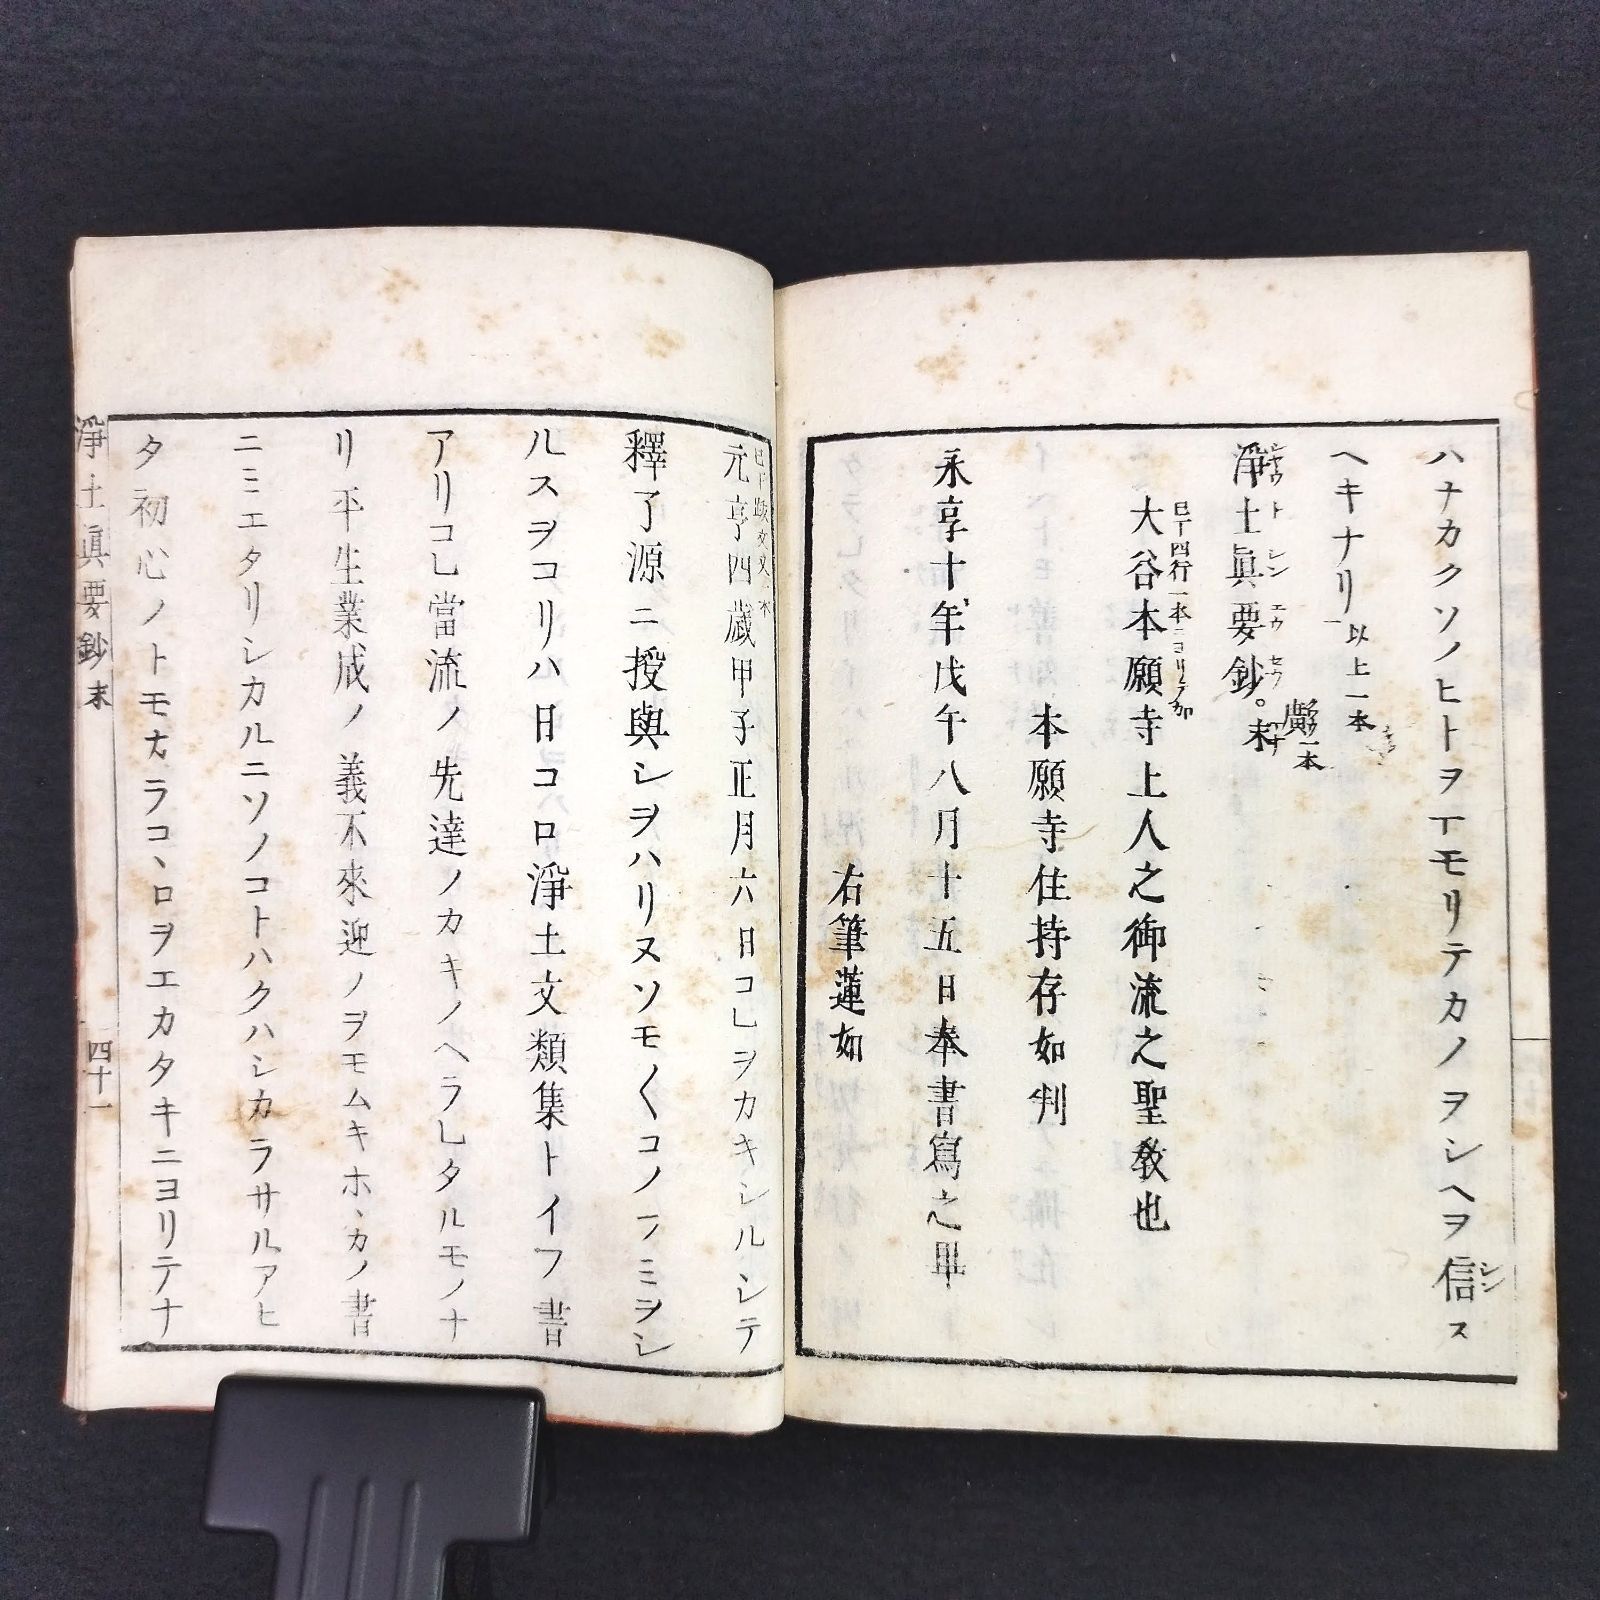 ハナカクソノヒトヲマモリテカノヲシヘヲ信シンス
ヘキナリ 以上一本
淨土眞要鈔。末
大谷本願寺上人之御流之聖教也
本願寺住持存如判
永享十年戊午八月十五日奉書寫之畢
右筆蓮如
元亨四歳甲子正月六日コレヲカキシルシテ
釋了源ニ授與シヲハリヌソモ〱コノフミヲシ
ルスヲコリハ日コロ淨土文類集トイフ書
アリコレ當流ノ先達ノカキノヘラレタルモノナ
リ平生業成ノ義不來迎ノヲモムキホヽカノ書
ニミエタリシカルニソノコトハクハシカラサルアヒ
タ初心ノトモカラコヽロヲエカタキニヨリテナ
淨土眞要鈔 末
四十一